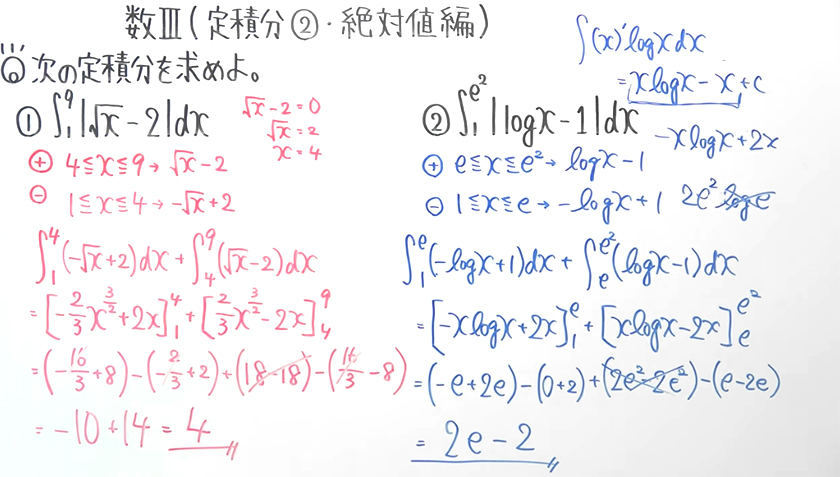 数Ⅲ(定積分②・絶対値編)
⑥次の定積分を求めよ。
① ∫₁⁹|√x-2|dx
√x-2=0
√x=2
x=4
⊕ 4≦x≦9→√x-2
⊖ 1≦x≦4→-√x+2
∫₁⁴(-√x+2)dx+∫₄⁹(√x-2)dx
=[-2/3x^(3/2)+2x]₁⁴+[2/3x^(3/2)-2x]₄⁹
=(-16/3+8)-(-2/3+2)+(18-18)-(16/3-8)
=-10+14=4
∫(x)'logxdx
=xlogx-x+c
② ∫₁^(e²)|logx-1|dx
-xlogx+2x
⊕ e≦x≦e²→logx-1
⊖ 1≦x≦e→-logx+1
2e² loge
∫₁^e(-logx+1)dx+∫_e^(e²)(logx-1)dx
=[-xlogx+2x]₁^e+[xlogx-2x]_e^(e²)
=(-e+2e)-(0+2)+(2e²-2e²)-(e-2e)
=2e-2